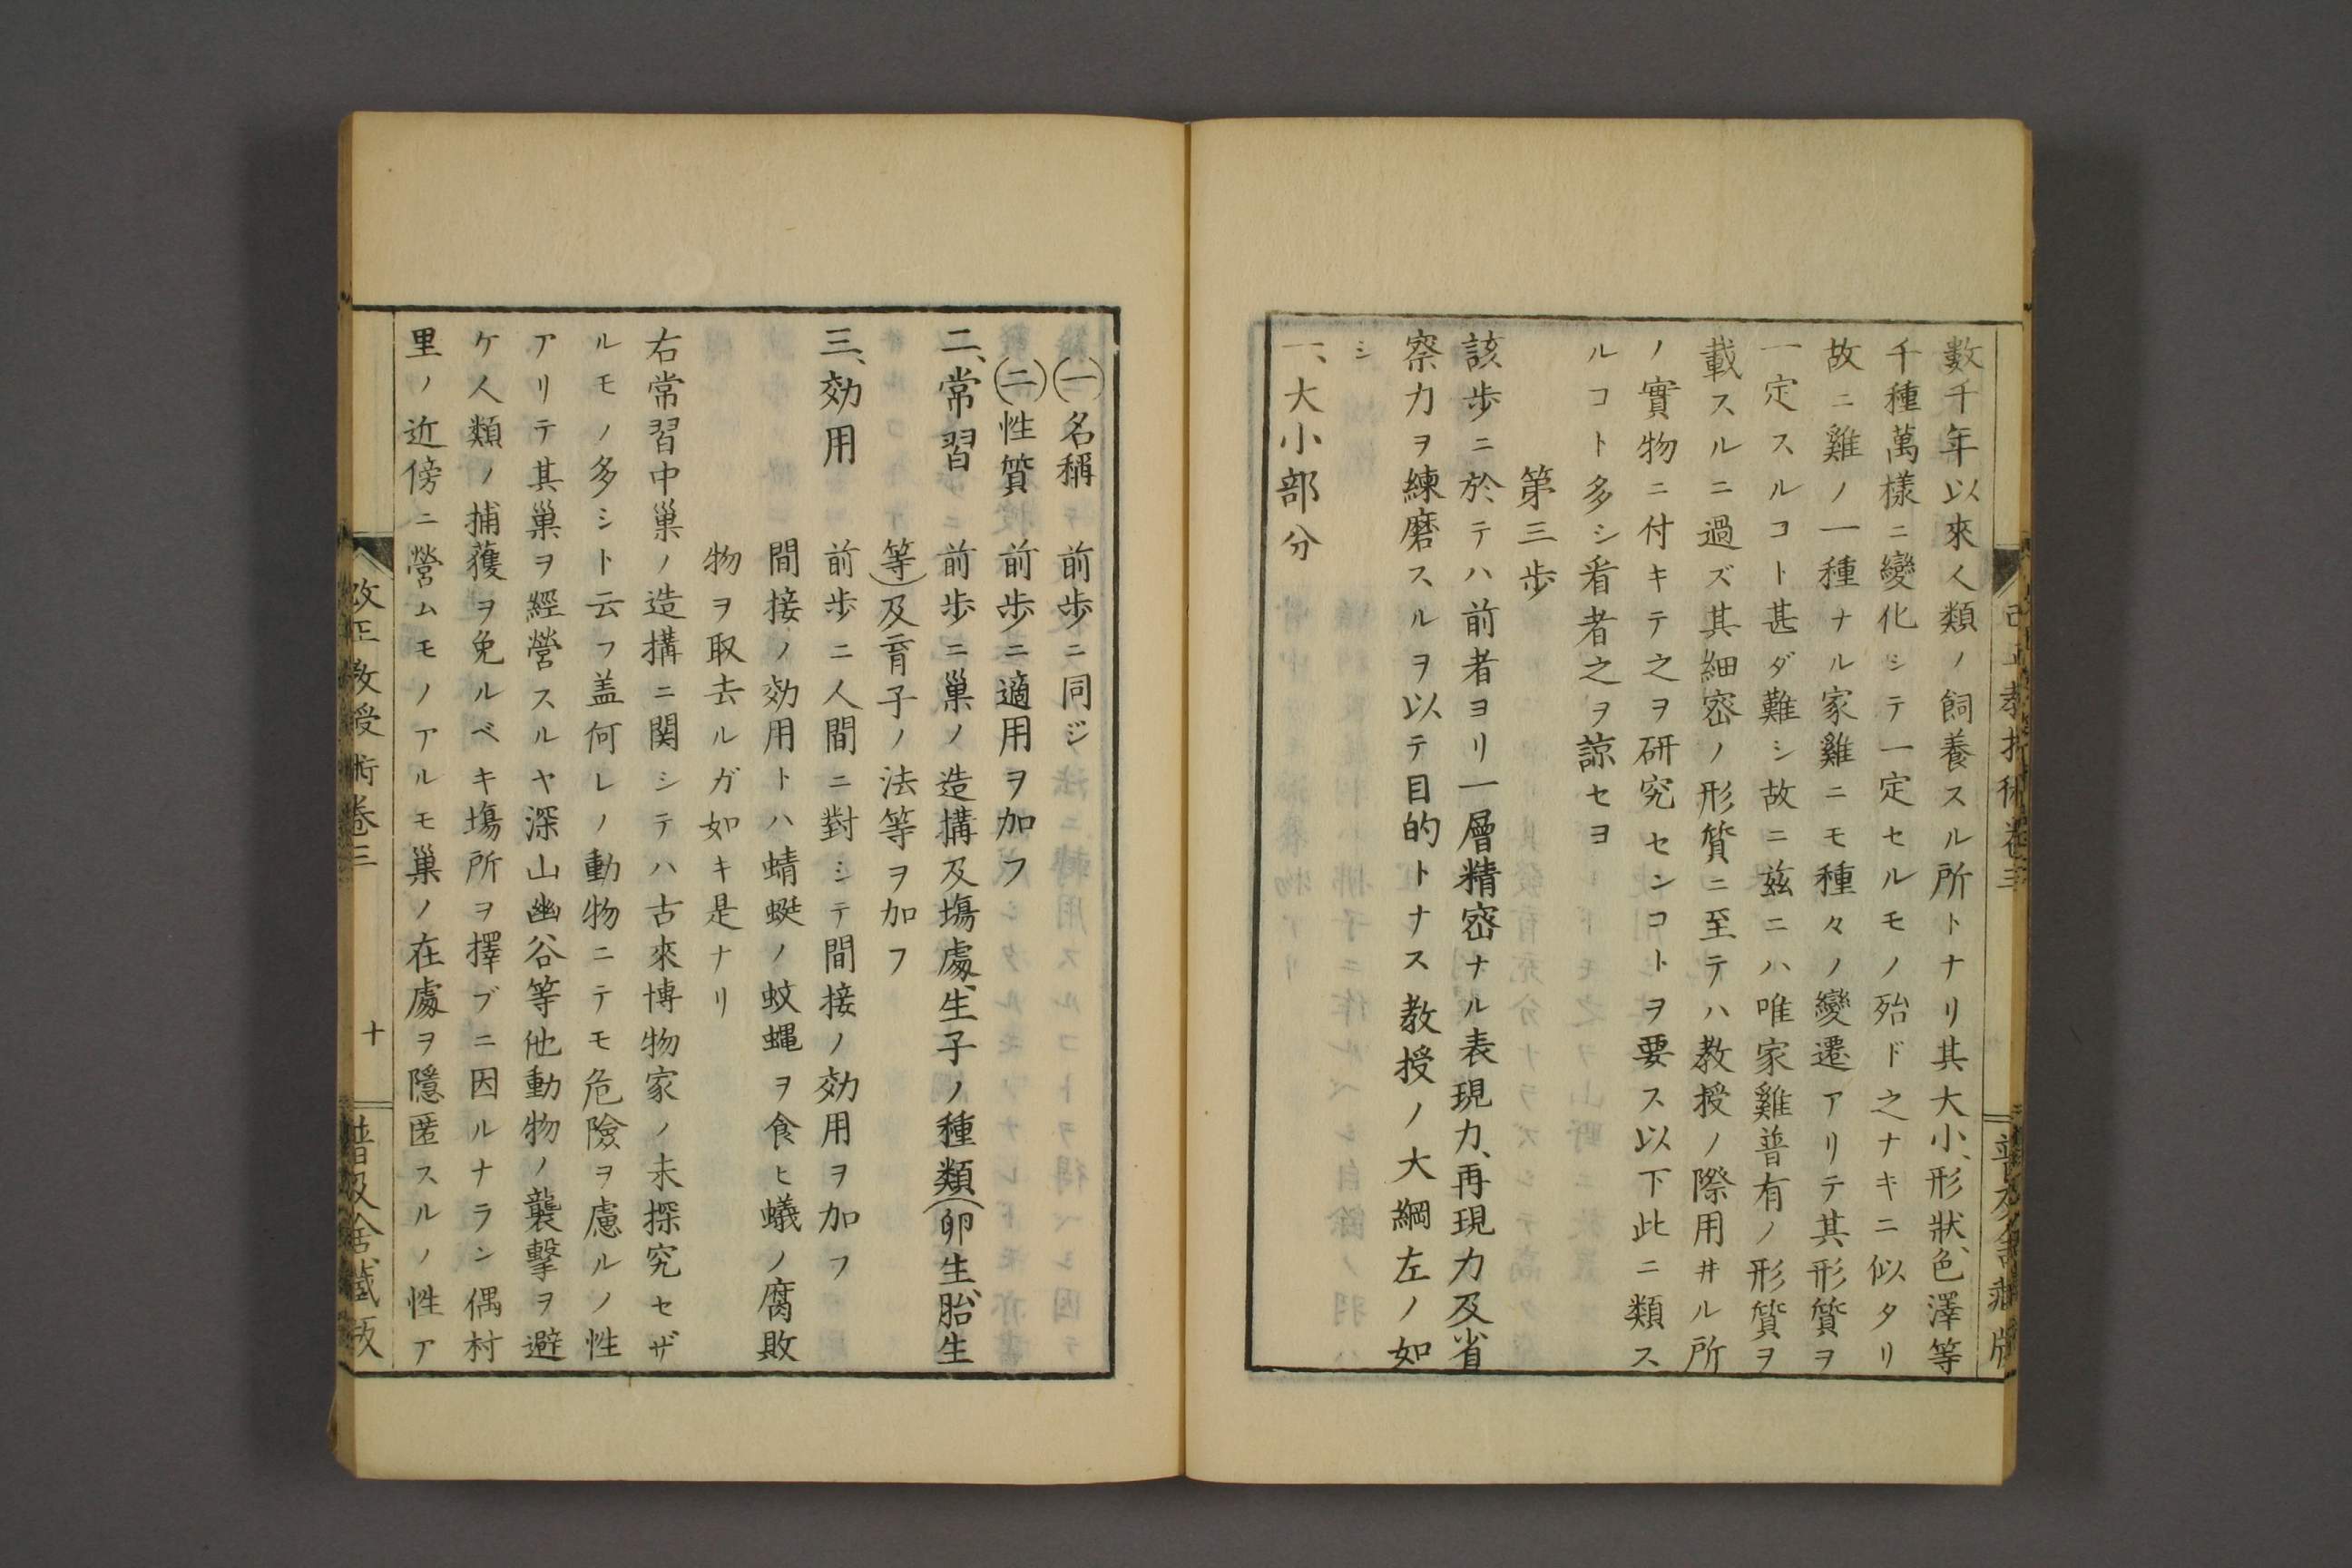 數千年以來人類ノ飼養スル所トナリ其大小、形狀、色澤等
千種萬樣ニ變化シテ一定セルモノ殆ド之ナキニ似タリ
故ニ雞ノ一種ナル家雞ニモ種々ノ變遷アリテ其形質ヲ
一定スルコト甚ダ難シ故ニ茲ニハ唯家雞普有ノ形質ヲ
載スルニ過ズ其細密ノ形質ニ至テハ教授ノ際用井ル所
ノ實物ニ付キテ之ヲ研究センコトヲ要ス以下此ニ類ス
ルコト多シ看者之ヲ諒セヨ
第三步
該步ニ於テハ前者ヨリ一層精密ナル表現力、再現力及省
察力ヲ練磨スルヲ以テ目的トナス教授ノ大綱左ノ如
シ
一、大小部分
(一)名稱 前步ニ同ジ
(二)性質 前步ニ適用ヲ加フ
二、常習 前步ニ巢ノ造搆及塲處、生子ノ種類(卵生、胎生
等)及育子ノ法等ヲ加フ
三、効用 前步ニ人間ニ對シテ間接ノ効用ヲ加フ
間接ノ効用トハ蜻蜓ノ蚊蠅ヲ食ヒ蟻ノ腐敗
物ヲ取去ルガ如キ是ナリ
右常習中巢ノ造搆ニ関シテハ古來博物家ノ未探究セザ
ルモノ多シト云フ盖何レノ動物ニテモ危險ヲ慮ルノ性
アリテ其巢ヲ經營スルヤ深山幽谷等他動物ノ襲擊ヲ避
ケ人類ノ捕獲ヲ免ルベキ塲所ヲ擇ブニ因ルナラン偶村
里ノ近傍ニ營ムモノアルモ巢ノ在處ヲ隱匿スルノ性ア
改正教授術卷三
十
普及舍藏版